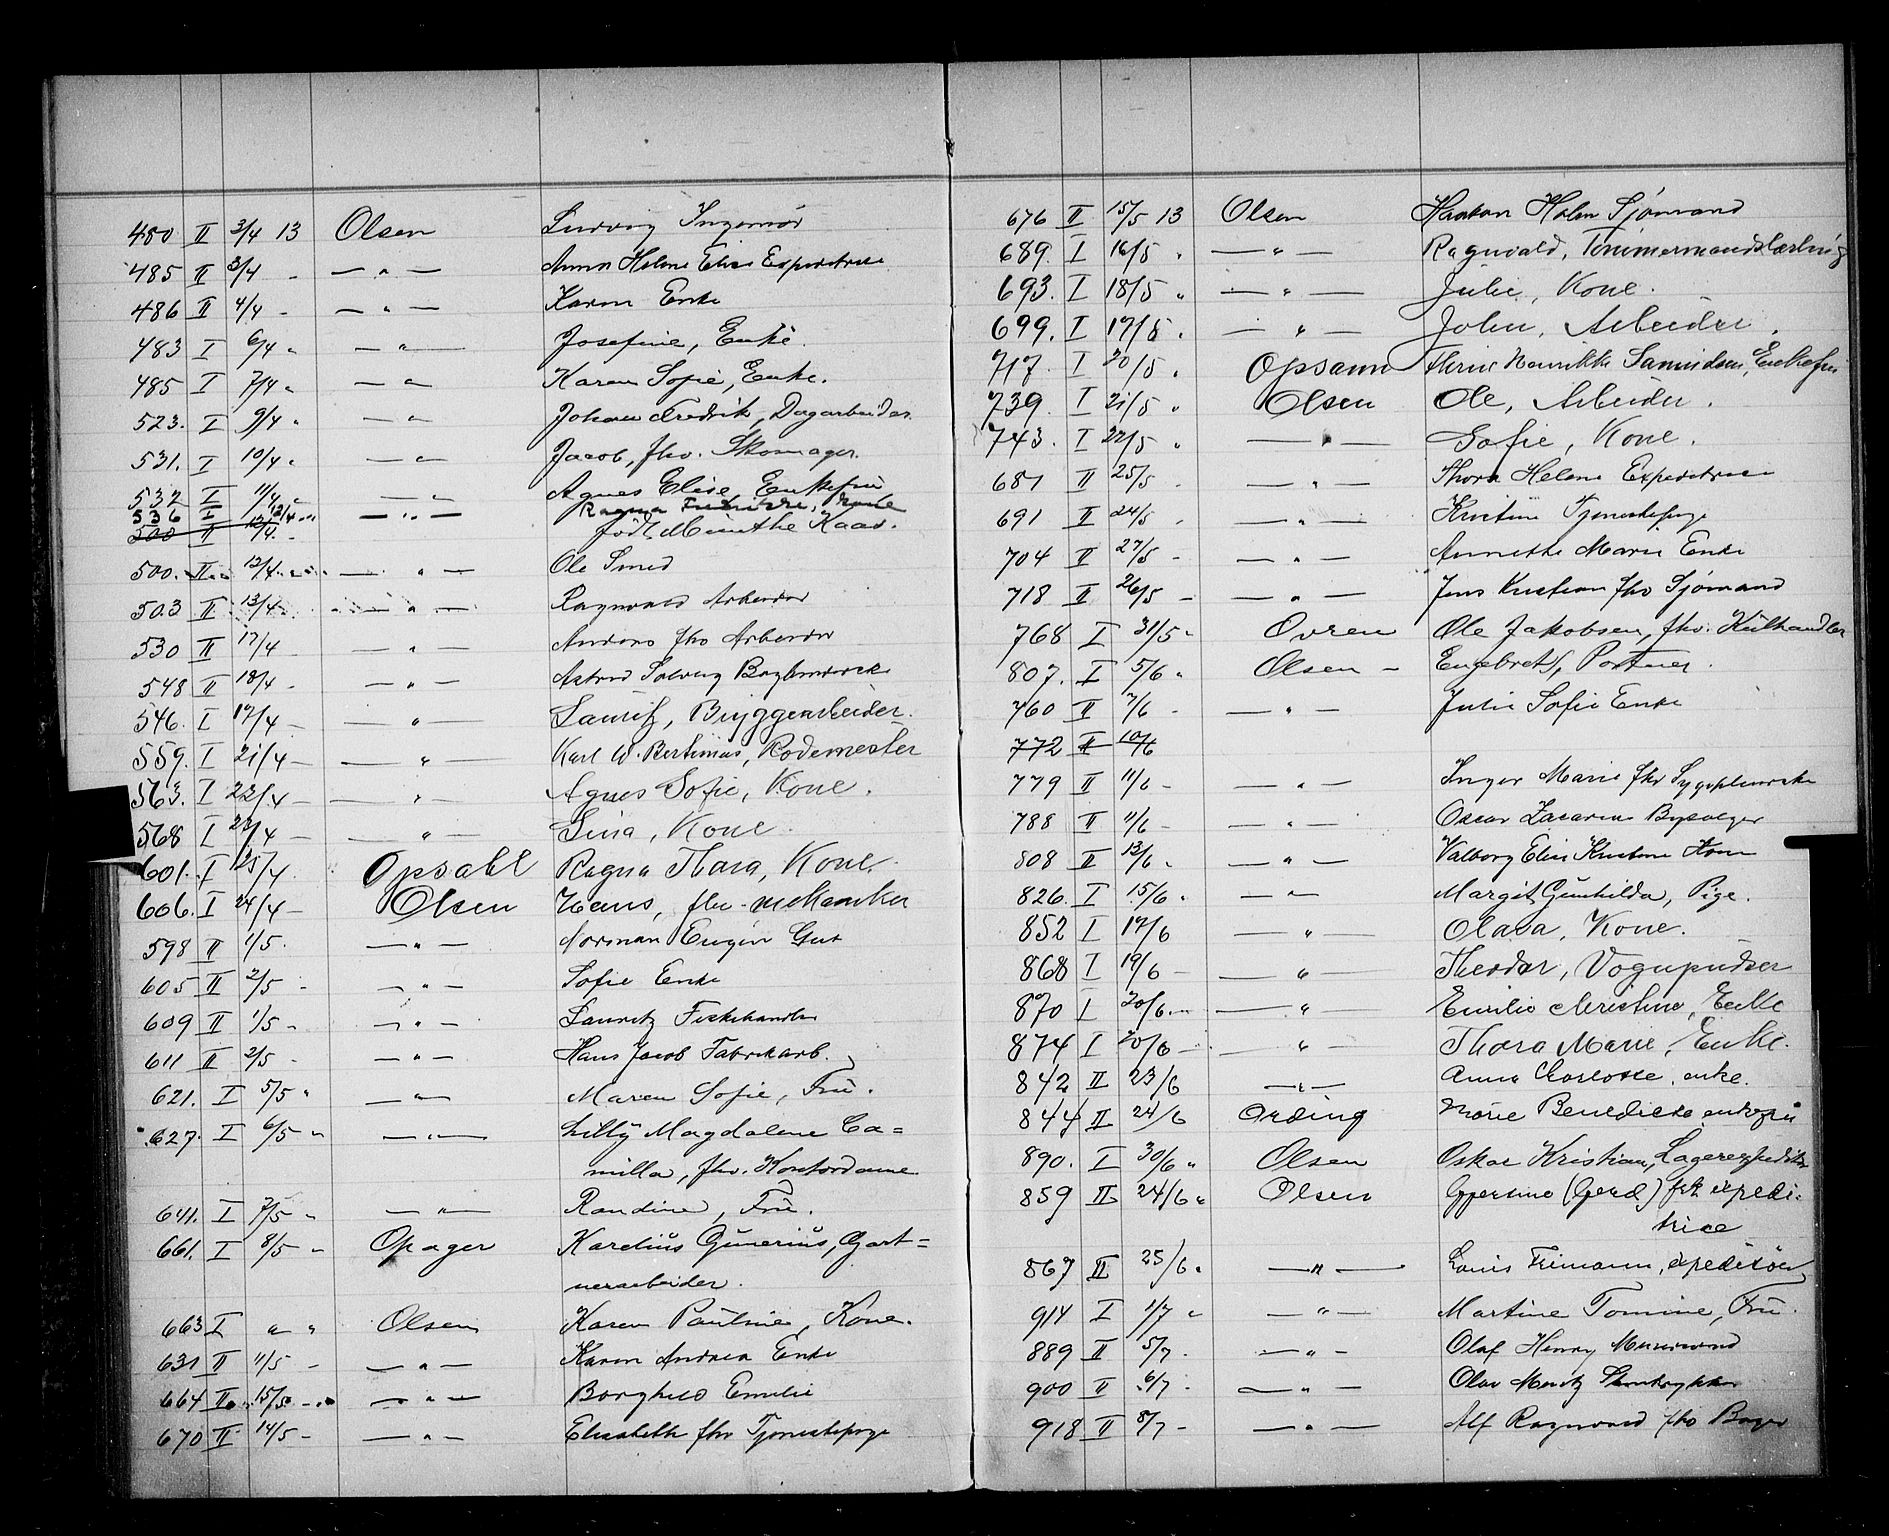 480 II 3/4 13 Olsen Ludvig Ingeniør
485 II 3/4 - — " — Anna Helene Elise Expeditrice
486 II 4/4 - — " — Karen Enke
483 I 6/4 " — " — Josefine, Enke.
485 I 7/4 " — " — Karen Sofie, Enke.
523. I 9/4 " — " — Johan Fredrik, Dagarbeider
531. I 10/4 " — " — Jacob, fhv. Skomager.
532 I 11/4 " — " — Agnes Elise Enkefru
536 I 12/4 " — " — Ragna Fredrikke, Kone
500 II 12/4 - født Münthe Kaas.
500. II 12/4 — " — Ole Smed
503 II 13/4 — " — Ragnvald Arbeider
530 II 17/4 — " — Anders fhv Arbeider
548 II 18/4 - — " — Astrid Solveig
546. I 17/4 — — " — Lauritz, Bryggearbeider.
559. I 21/4 — — " — Karl W. Bertinius, Rodemester
563. I 22/4 — — " — Agnes Sofie, Kone.
568 I 23/4 — — " — Lina, Kone.
601. I 25/4 Opsahl Ragna Thora, Kone.
606. I 24/4 — Olsen Hans, fhv. mekaniker
598 II 1/5. — " — Norman Eugen Gut
605 II 2/5 - — " — Sofie Enke
609 II 1/5 - — " — Lauritz Fiskehandler
611 II 2/5 - — " — Hans Jacob Fabrikarb.
621. I 5/5 " — " — Maren Sofie, Fru.
627. I 6/5 " — " — Lilly Magdalene Ca=
milla, fhv. Kontordame
641. I 7/5 " — " — Randine, Fru.
661. I 8/5 " Opager Karelius Gunerius, Gart=
nerarbeider.
663 I " " Olsen Karen Pauline, Kone.
631 II 11/5 - — " — Karen Andrea Enke
664 II 15/5 - — " — Borghild Emilie
670 II 14/5 - — " — Elisabeth fhv Tjenestepige
676 II 15/5 13 Olsen Haakon Holm Sjømand
689. I 16/5 " — " — Ragnvald, Tømmermandslærling
693. I 18/5 " — " — Julie, Kone.
699. I 17/5 " — " — John, Arbeider.
717. I 20/5 " Opsann Henrikke Enkefru
739. I 21/5 " Olsen Ole, Arbeider.
743. I 22/5 " — " — Sofie, Kone.
681 II 25/5 - — " — Thora Helene Expeditrice
691 II 24/5 - — " — Kristine Tjenestepige
704 II 27/5 - — " — Annette Marie Enke
718 II 26/5 - — " — Jens Kristian fhv Sjømand
768 I 31/5 " Ovren Ole Jakobsen, fhv. Kulhandler
807. I 5/6 " Olsen - Engebret, Portner.
760 II 7/6 - — " — Julie Sofie Enke
772 II 10/6
779 II 11/6 - — " — Inger Marie fhv Sygepleierske
788 II 11/6 - — " — Oscar Zacarias
808 II 13/6 " — " — Valborg Elise Kristine Kone
826. I 15/6 " — " — Margit Gunhilda, Pige.
852 I 17/6 — " — Olava, Kone.
868 I 19/6 - — " — Theodor, Vognpudser
870 I 20/6 — — " — Emilie Christine, Enke
874 I 20/6 — — " — Thora Marie, Enke.
842 II 23/6 — " — Anna Charlotte, enke.
844 II 24/6 Ording Marie Benedicte enkefru
890. I 30/6 " Olsen Oskar Kristian, Lagerexpeditør
859 II 24/6 " Olsen Gjertine (Gerd) frk expedi-
trice
867 II 25/6 " — " — Louis Frimann, expeditør
914 I 1/7 " — " — Martine Tomine, Fru.
889 II 5/7 - — " — Olaf Henry
900 II 6/7 - — " — Olav Moritz Stentrykker
918 II 8/7 - — " — Alf Ragnvald fhv Bager